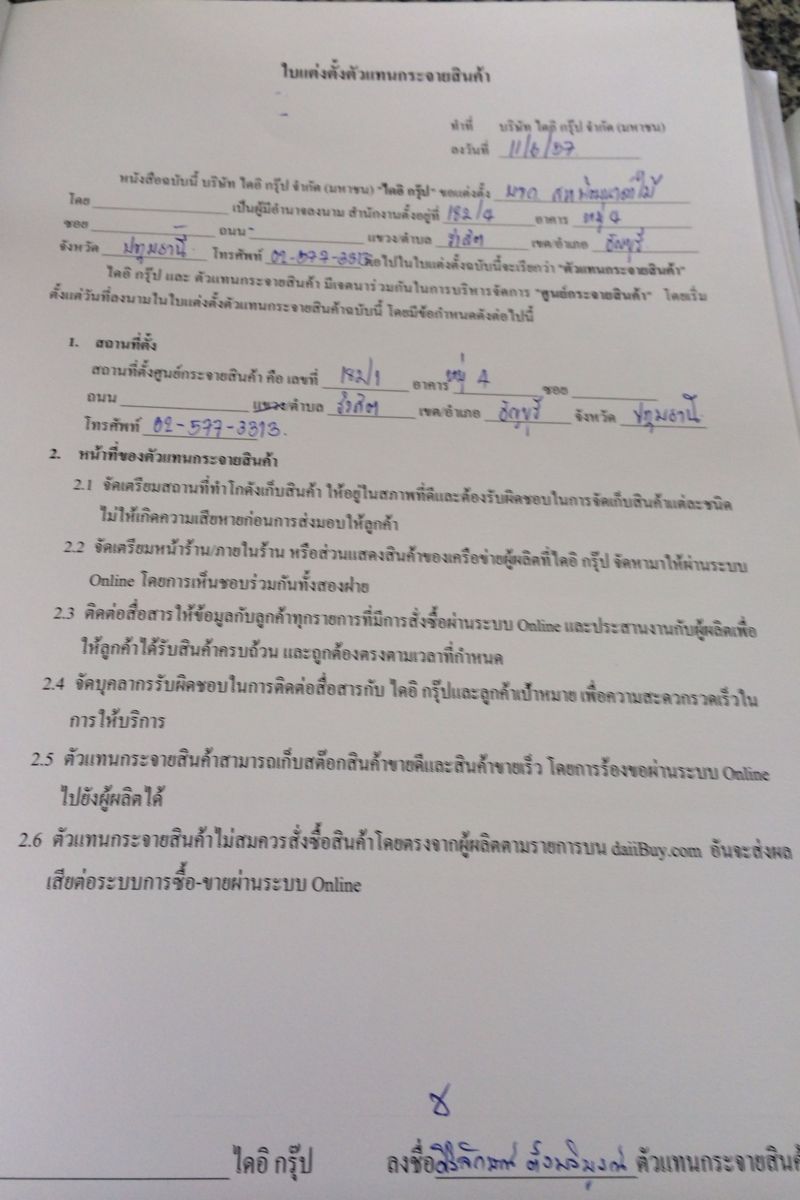 ใบแต่งตั้งตัวแทนกระจายสินค้า
ทำที่ บริษัท ไดอิ กรุ๊ป จำกัด (มหาชน)
ลงวันที่ 11/6/57
หนังสือฉบับนี้ บริษัท ไดอิ กรุ๊ป จำกัด (มหาชน) "ไดอิ กรุ๊ป" ขอแต่งตั้ง
โดย เป็นผู้มีอำนาจลงนาม สำนักงานตั้งอยู่ที่ 182/4 อาคาร หมู่ 4
ซอย ถนน - แขวง/ตำบล รังสิต เขต/อำเภอ ธัญบุรี
จังหวัด ปทุมธานี โทรศัพท์ 02-577-3313 ต่อไปในใบแต่งตั้งฉบับนี้จะเรียกว่า "ตัวแทนกระจายสินค้า"
ไดอิ กรุ๊ป และ ตัวแทนกระจายสินค้า มีเจตนาร่วมกันในการบริหารจัดการ "ศูนย์กระจายสินค้า" โดยเริ่ม
ตั้งแต่วันที่ลงนามในใบแต่งตั้งตัวแทนกระจายสินค้าฉบับนี้ โดยมีข้อกำหนดดังต่อไปนี้
1. สถานที่ตั้ง
สถานที่ตั้งศูนย์กระจายสินค้า คือ เลขที่ 182/1 อาคาร หมู่ 4 ซอย
ถนน แขวง/ตำบล รังสิต เขต/อำเภอ ธัญบุรี จังหวัด ปทุมธานี
โทรศัพท์ 02-577-3313.
2. หน้าที่ของตัวแทนกระจายสินค้า
2.1 จัดเตรียมสถานที่ทำโกดังเก็บสินค้า ให้อยู่ในสภาพที่ดีและต้องรับผิดชอบในการจัดเก็บสินค้าแต่ละชนิด
ไม่ให้เกิดความเสียหายก่อนการส่งมอบให้ลูกค้า
2.2 จัดเตรียมหน้าร้าน/ภายในร้าน หรือส่วนแสดงสินค้าของเครือข่ายผู้ผลิตที่ไดอิ กรุ๊ป จัดหามาให้ผ่านระบบ
Online โดยการเห็นชอบร่วมกันทั้งสองฝ่าย
2.3 ติดต่อสื่อสารให้ข้อมูลกับลูกค้าทุกรายการที่มีการสั่งซื้อผ่านระบบ Online และประสานงานกับผู้ผลิตเพื่อ
ให้ลูกค้าได้รับสินค้าครบถ้วน และถูกต้องตรงตามเวลาที่กำหนด
2.4 จัดบุคลากรรับผิดชอบในการติดต่อสื่อสารกับ ไดอิ กรุ๊ปและลูกค้าเป้าหมาย เพื่อความสะดวกรวดเร็วใน
การให้บริการ
2.5 ตัวแทนกระจายสินค้าสามารถเก็บสต๊อกสินค้าขายดีและสินค้าขายเร็ว โดยการร้องขอผ่านระบบ Online
ไปยังผู้ผลิตได้
2.6 ตัวแทนกระจายสินค้าไม่สมควรสั่งซื้อสินค้าโดยตรงจากผู้ผลิตตามรายการบน daiiBuy.com อันจะส่งผล
เสียต่อระบบการซื้อ-ขายผ่านระบบ Online
ไดอิ กรุ๊ป ลงชื่อ ตัวแทนกระจายสินค้า